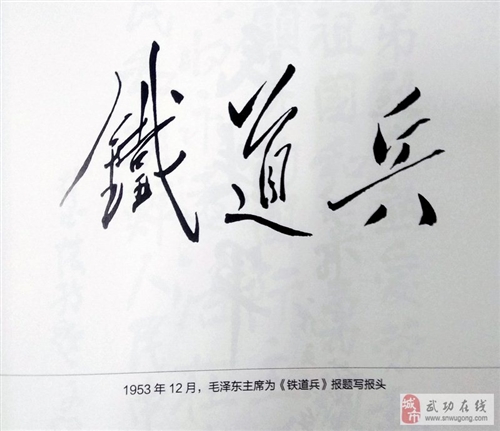 鐵道兵
1953年12月，毛泽东主席为《铁道兵》报题写报头
城市
武功在线
www.snwugong.com